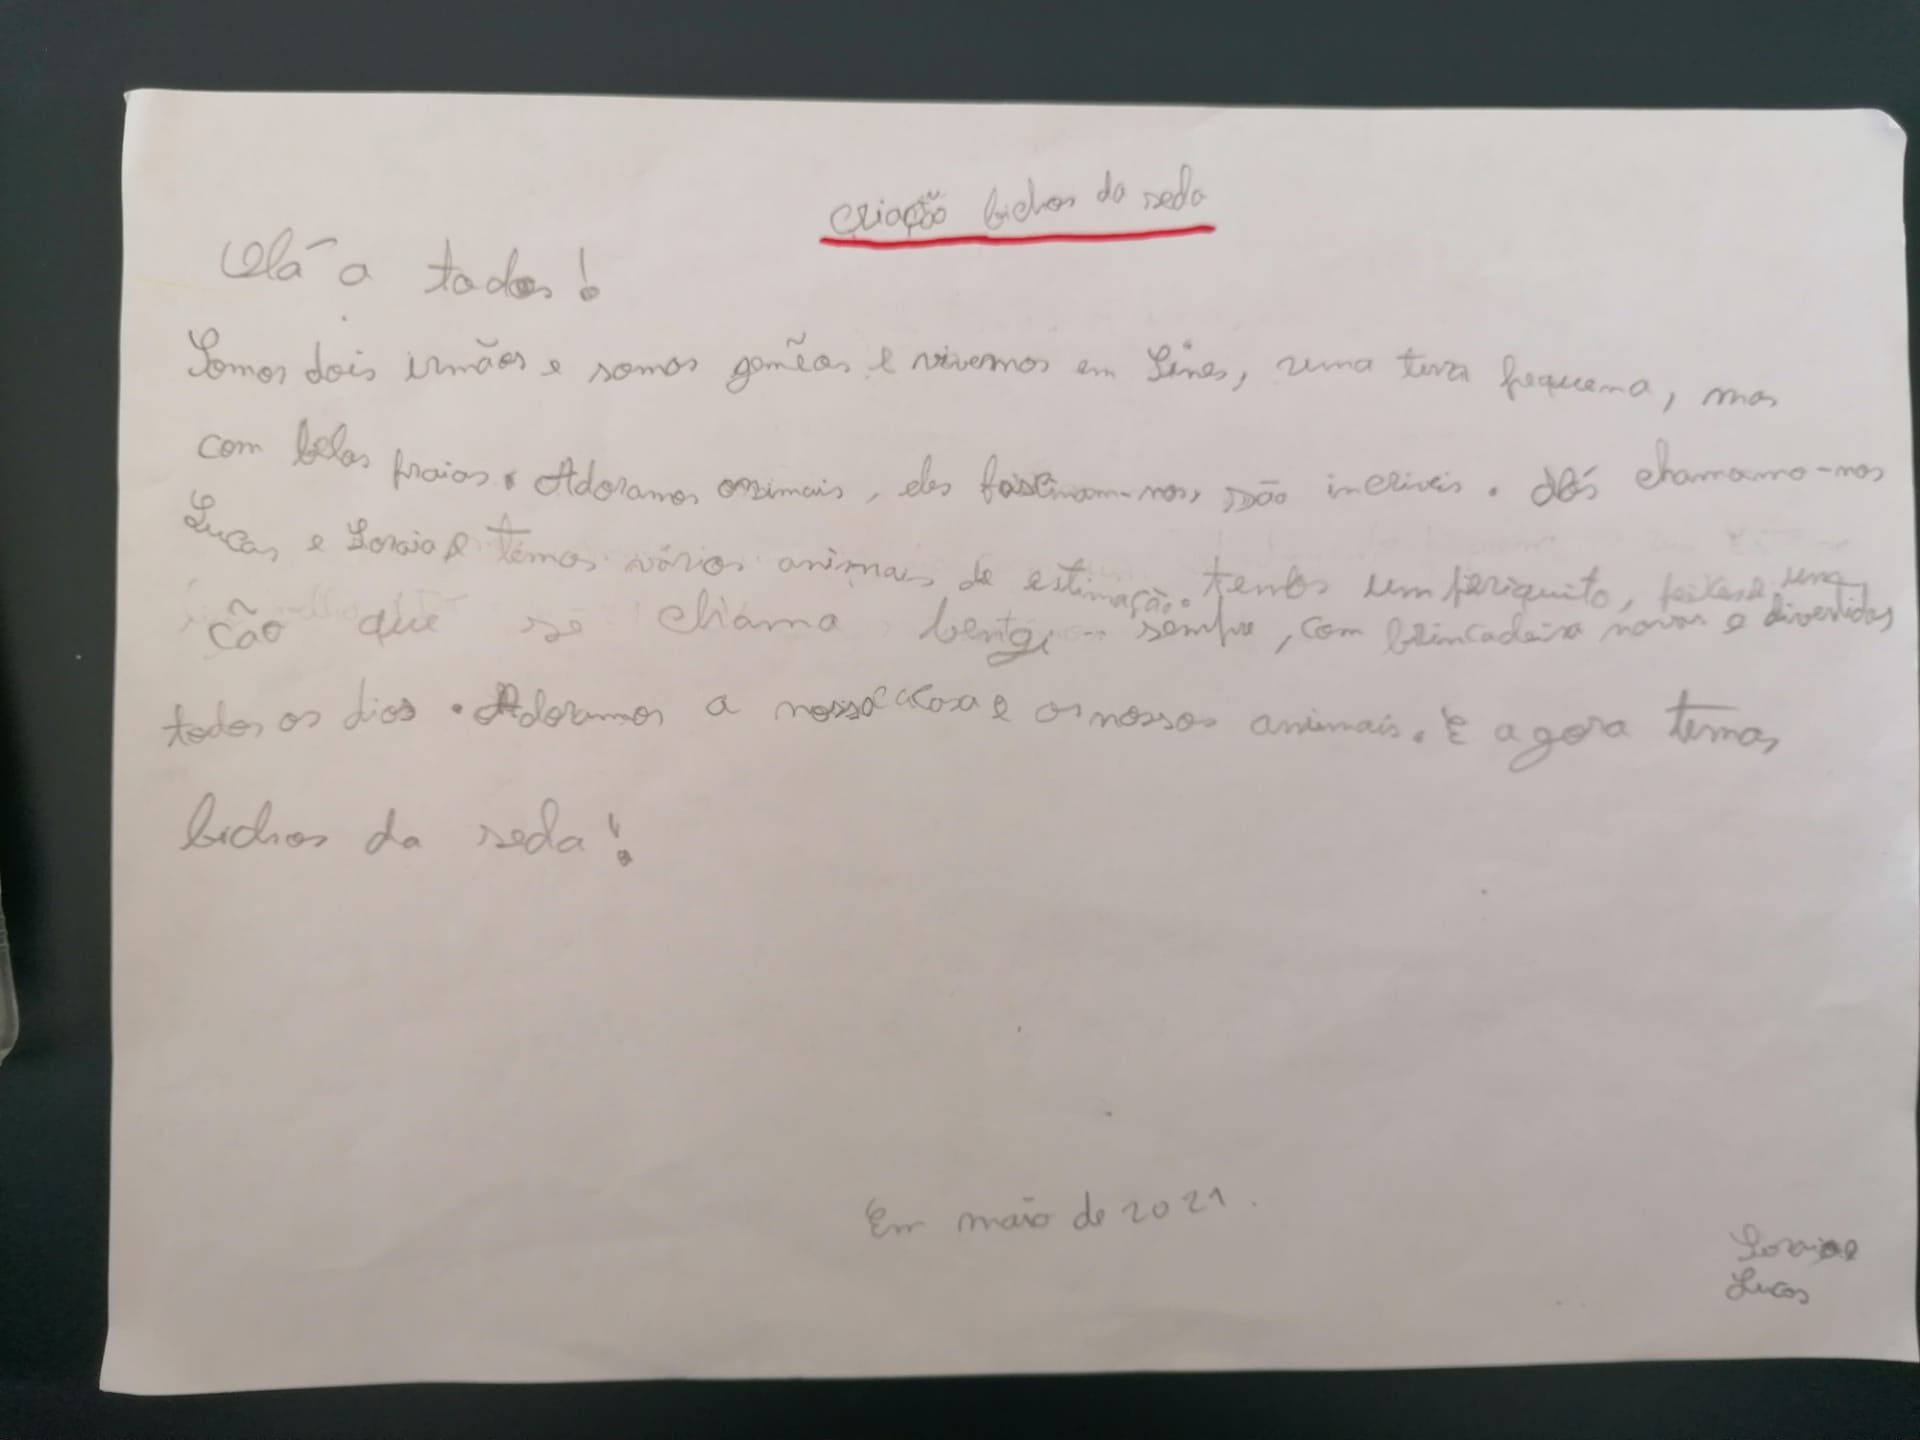 criação bichos da seda
Olá a todos!
Somos dois irmãos e somos gemêos e vivemos em Sines, uma terra pequena, mas
com belas praias. Adoramos animais, eles fascinam-nos, são incriveis. Nós chamamo-nos
Lucas e Soraia e temos vários animais de estimação. temos um periquito, peixes e um
cão que se chama sempre, com brincadeira novas e divertidas
todos os dias. Adoramos a nossa casa e os nossos animais. E agora temos
bichos da seda!
Em maio de 2021.
Soraia e
Lucas